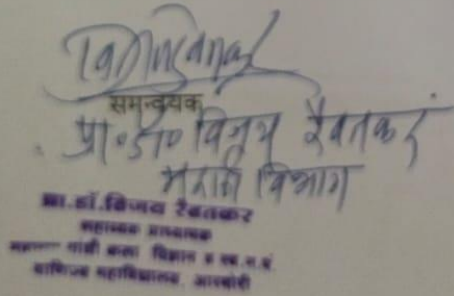 समन्वयक
प्रा. डॉ० विजय रैवतकर
मराठी विभाग
प्रा.डॉ.विजय रैवतकर
सहाय्यक प्राध्यापक
महात्मा गांधी कला विज्ञान व स्व.न.पं.
वाणिज्य महाविद्यालय, आरमोरी